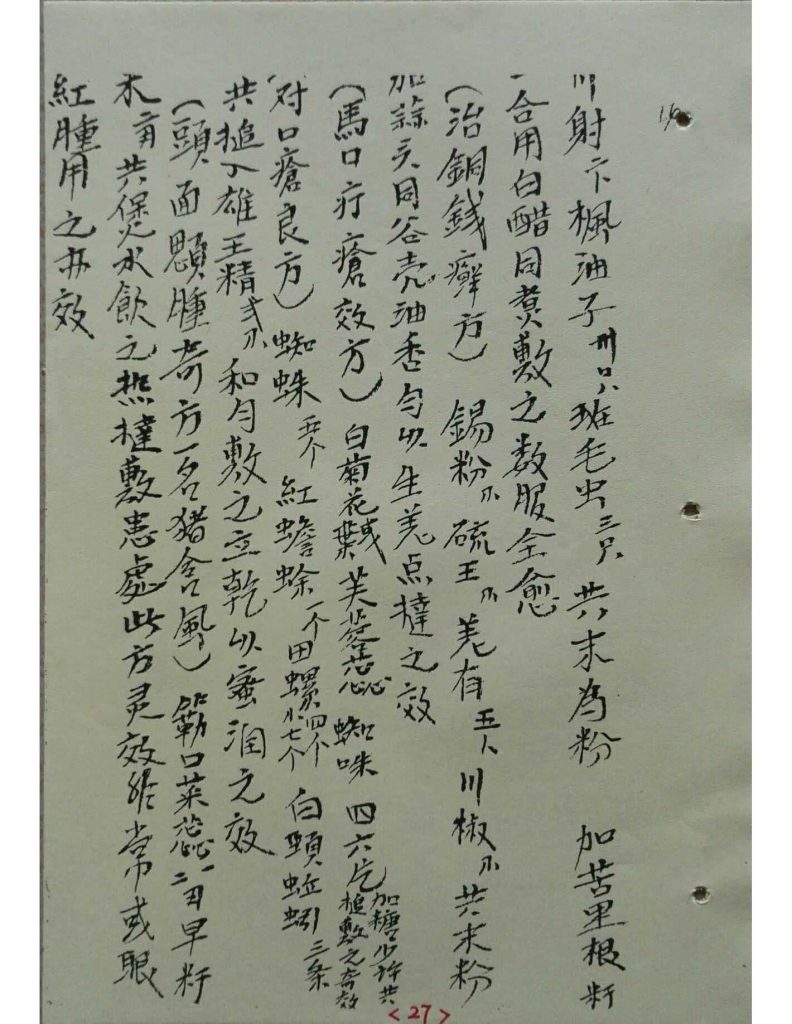 川射 枫油子 班毛虫三只 共末為粉 加苦里根
合用白醋同煮敷之数服全愈
(治銅銭癣方) 錫粉 硫王 羌有 川椒 共末粉
加蒜 同谷壳油香匀以生羌点撻之效
(馬口疔瘡效方) 白菊花葉或芙蓉蕊 蜘蛛 四六片 加糖少許共槌敷之奇效
对口瘡良方) 蜘蛛 五个 紅蟾蜍 一个 田螺 四个 小七个 白頸蚯蚓 三条
共槌入雄王精 和匀敷之立乾以蜜润之效
(頭面顋腫奇方一名猪含風) 簕口菜蕊 二 早
共煲水飲之 熱撻敷患處此方灵效非常或眼
紅腫用之亦效
16
<27>